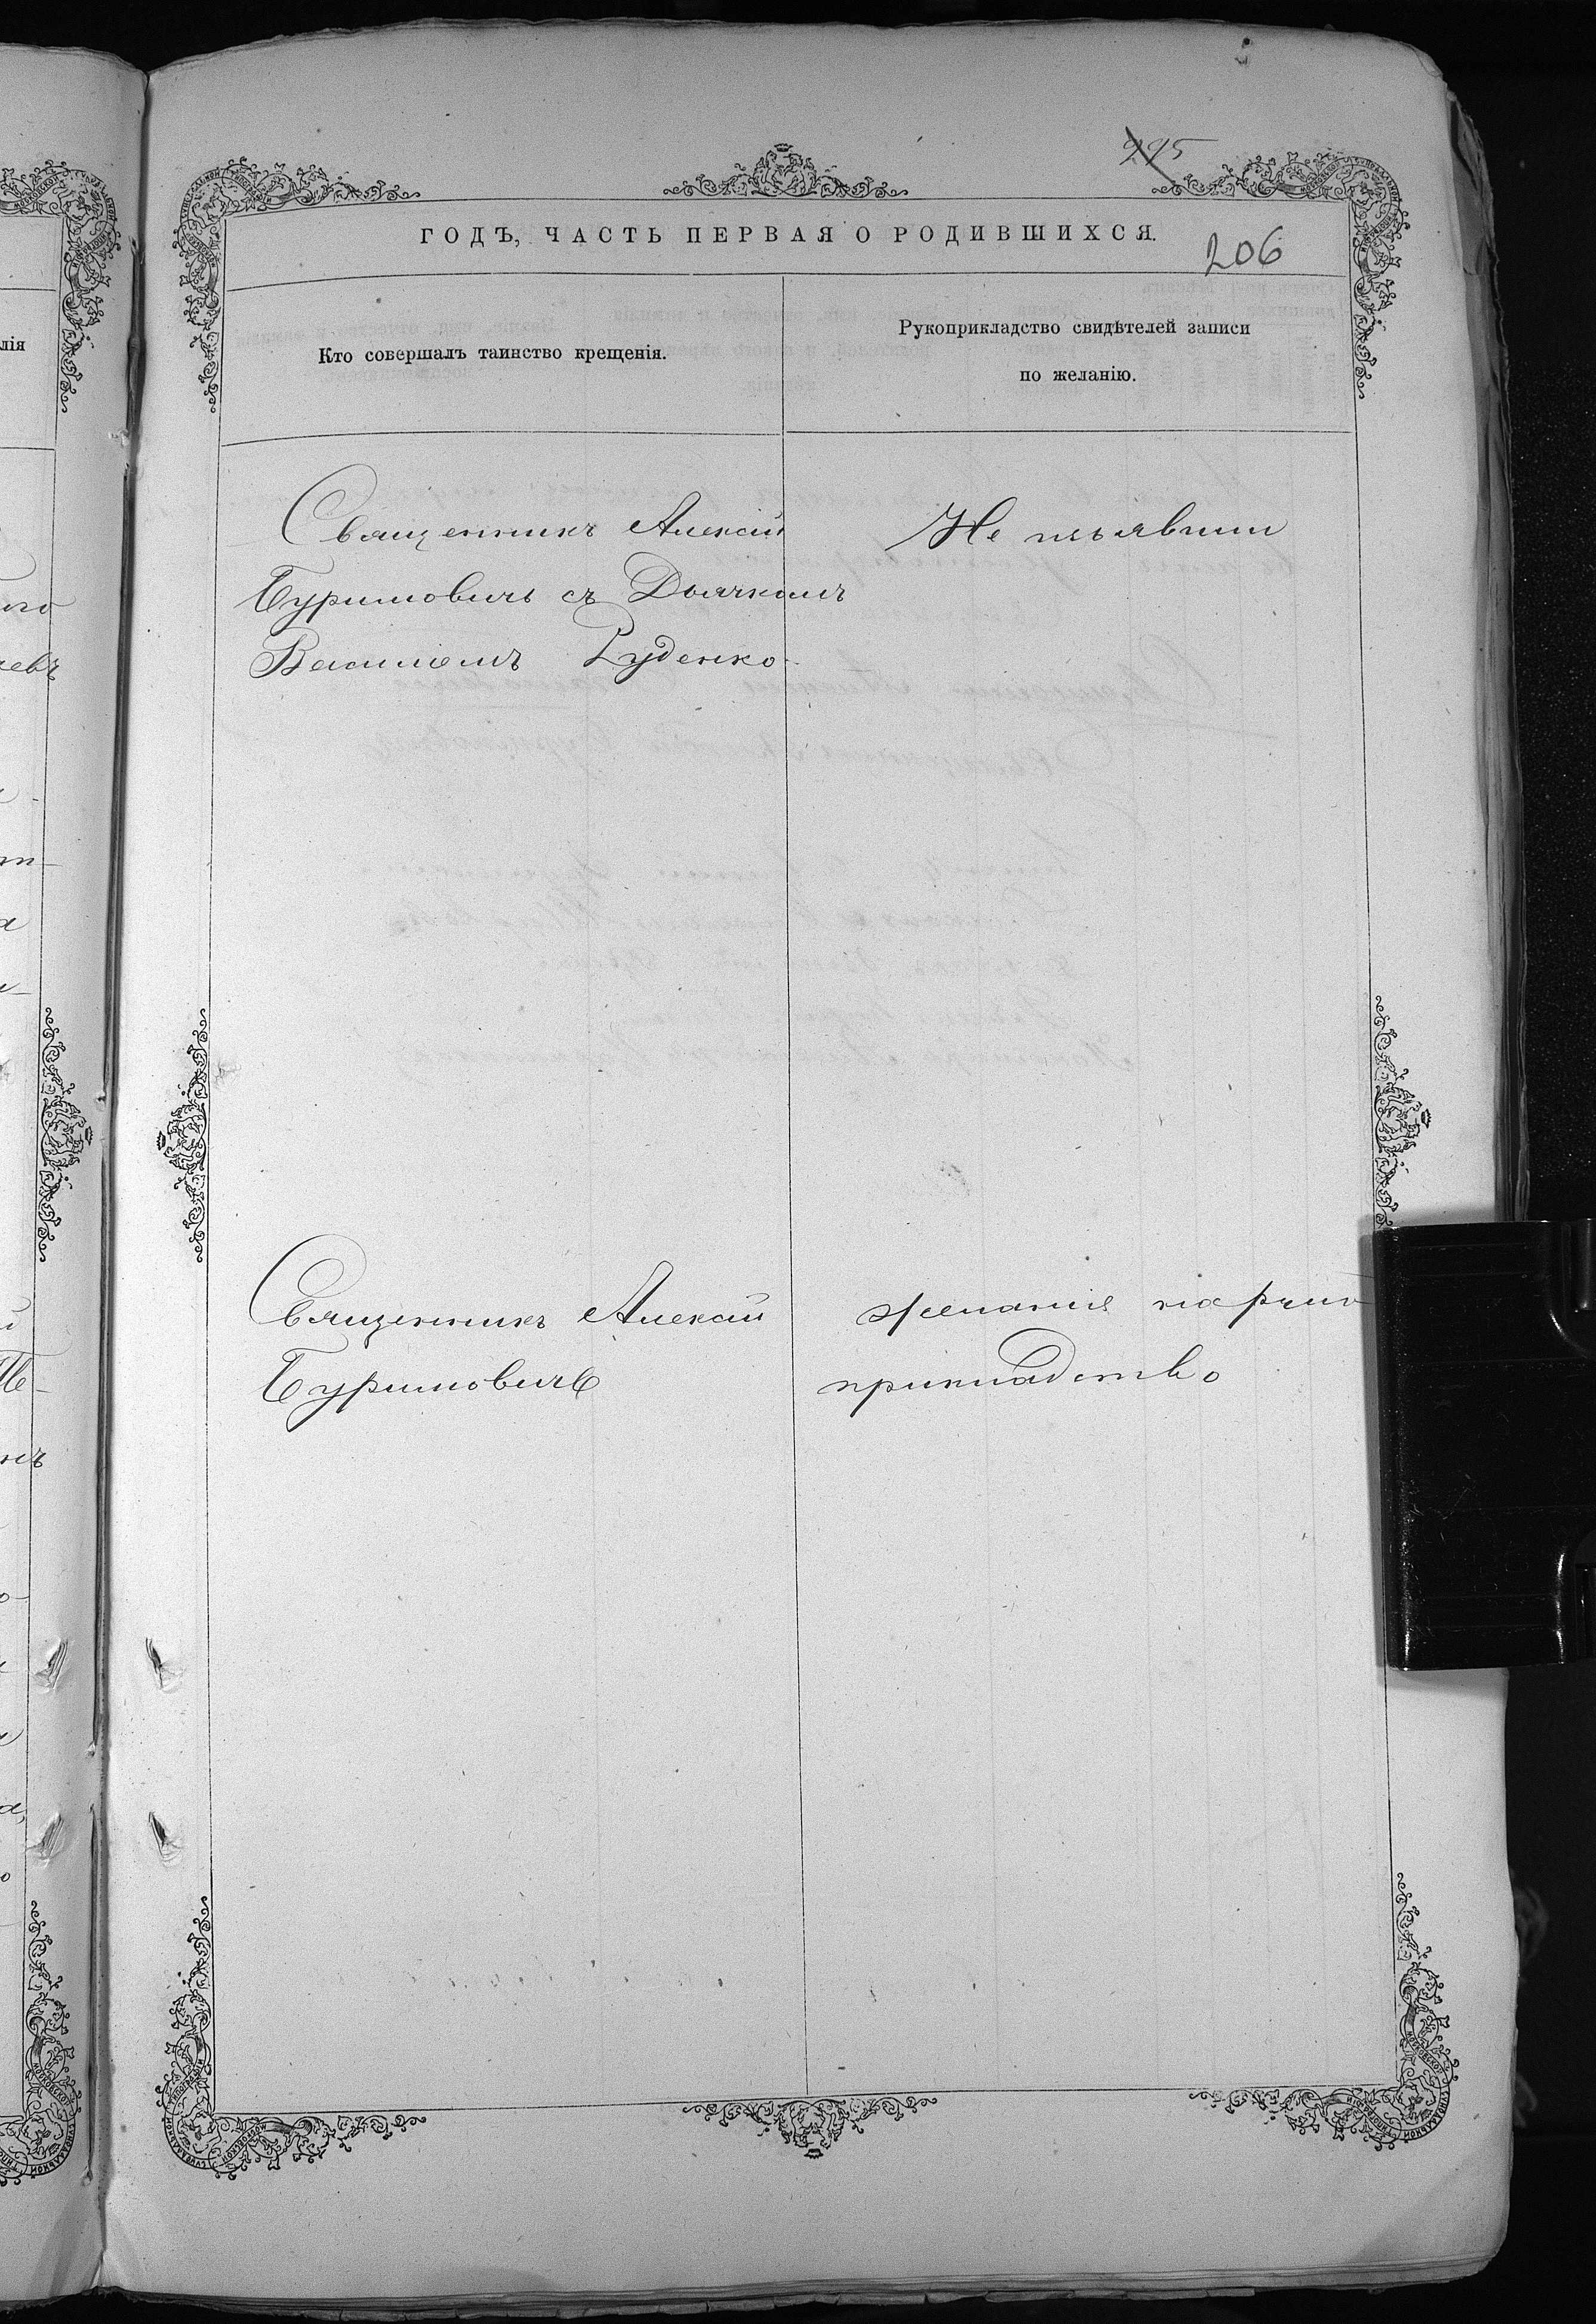 225
ГОДЪ, ЧАСТЬ ПЕРВАЯ О РОДИВШИХСЯ.
206
Кто совершалъ таинство крещенія.
Рукоприкладство свидѣтелей записи
по желанію.
лія
Священникъ Алексій
Буримовичъ съ Дьячкомъ
Василіемъ Руденко
Не изъявили
Священникъ Алексій
Буримовичъ
желанія на руко
прикладство